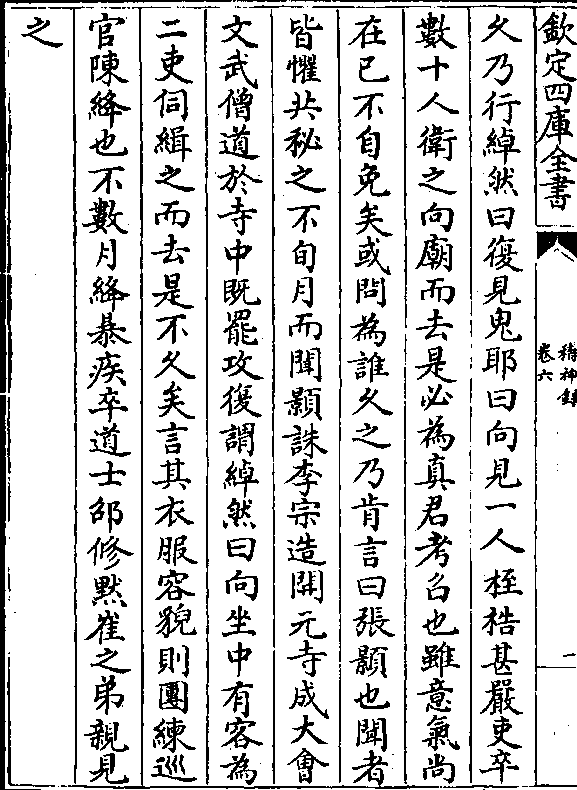 欽定四庫全書
稽神錄
卷六
一
乆乃行綽然曰復見鬼耶曰向見一人桎梏甚嚴吏卒
數十人衛之向廟而去是必為真君考召也雖意氣尚
在已不自免矣或問為誰乆之乃肯言曰張顥也聞者
皆懼共秘之不旬月而聞顥誅李宗造開元寺成大會
文武僧道於寺中既罷攻復謂綽然曰向坐中有客為
二吏伺緝之而去是不乆矣言其衣服容貌則團練巡
官陳絳也不數月絳暴疾卒道士邵修黙崔之弟親見
之